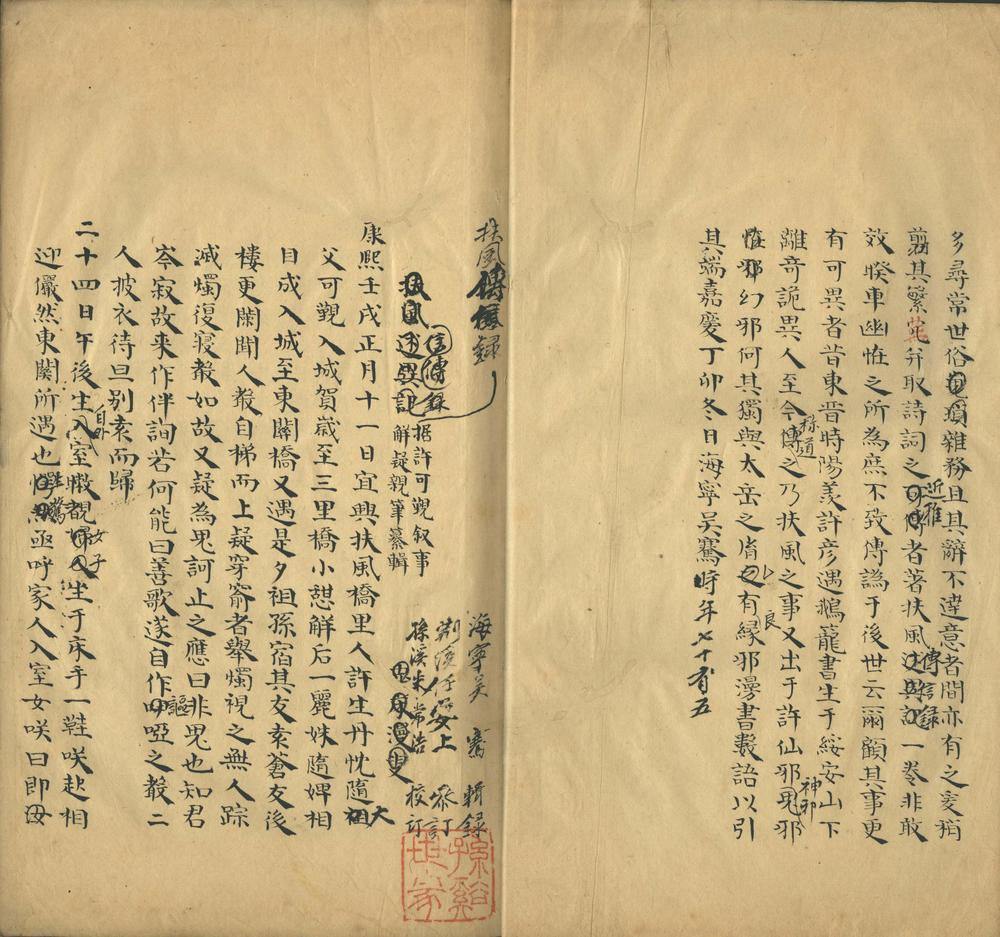 多尋常世俗瑣雜務且其辭不達意者間亦有之爰稍
翦其繁蕪弁取詩詞之近雅者著扶風傳信錄一卷非敢
效睽車幽怪之所為庶不致傳譌于後世云爾顧其事更
有可異者昔東晋時陽羨許彦遇鵝籠書生于綏安山下
離奇詭異人至今稱道之乃扶風之事又出于許仙邪鬼邪神邪
怪邪幻邪何其獨與太岳之胄良有緣邪漫書數語以引
其端嘉慶丁卯冬日海寧吳騫時年七十有五
扶風傳信錄
扶風述異記
信傳錄
据許可觀叙事
解疑親筆纂輯
海寧吳騫輯錄
荆溪任安上叅訂
孫溪朱常浩校訂
康熙壬戌正月十一日宜興扶風橋里人許生丹忱隨大
父可觀入城賀歲至三里橋小憇解后一麗姝隨婢相
目成入城至東關橋又遇是夕祖孫宿其友袁蒼友後
樓更闌聞人聲自梯而上疑穿窬者舉燭視之無人踪
滅燭復寢聲如故又疑為鬼訶止之應曰非鬼也知君
岑寂故来作伴詢若何能曰善歌遂自作謳啞之聲二
人披衣待旦别袁而歸
二十四日午後生自外入室瞥覩女子坐于床手一鞋咲起相
迎儼然東關所遇也生驚亟呼家人入室女咲曰即母
孫谿世家